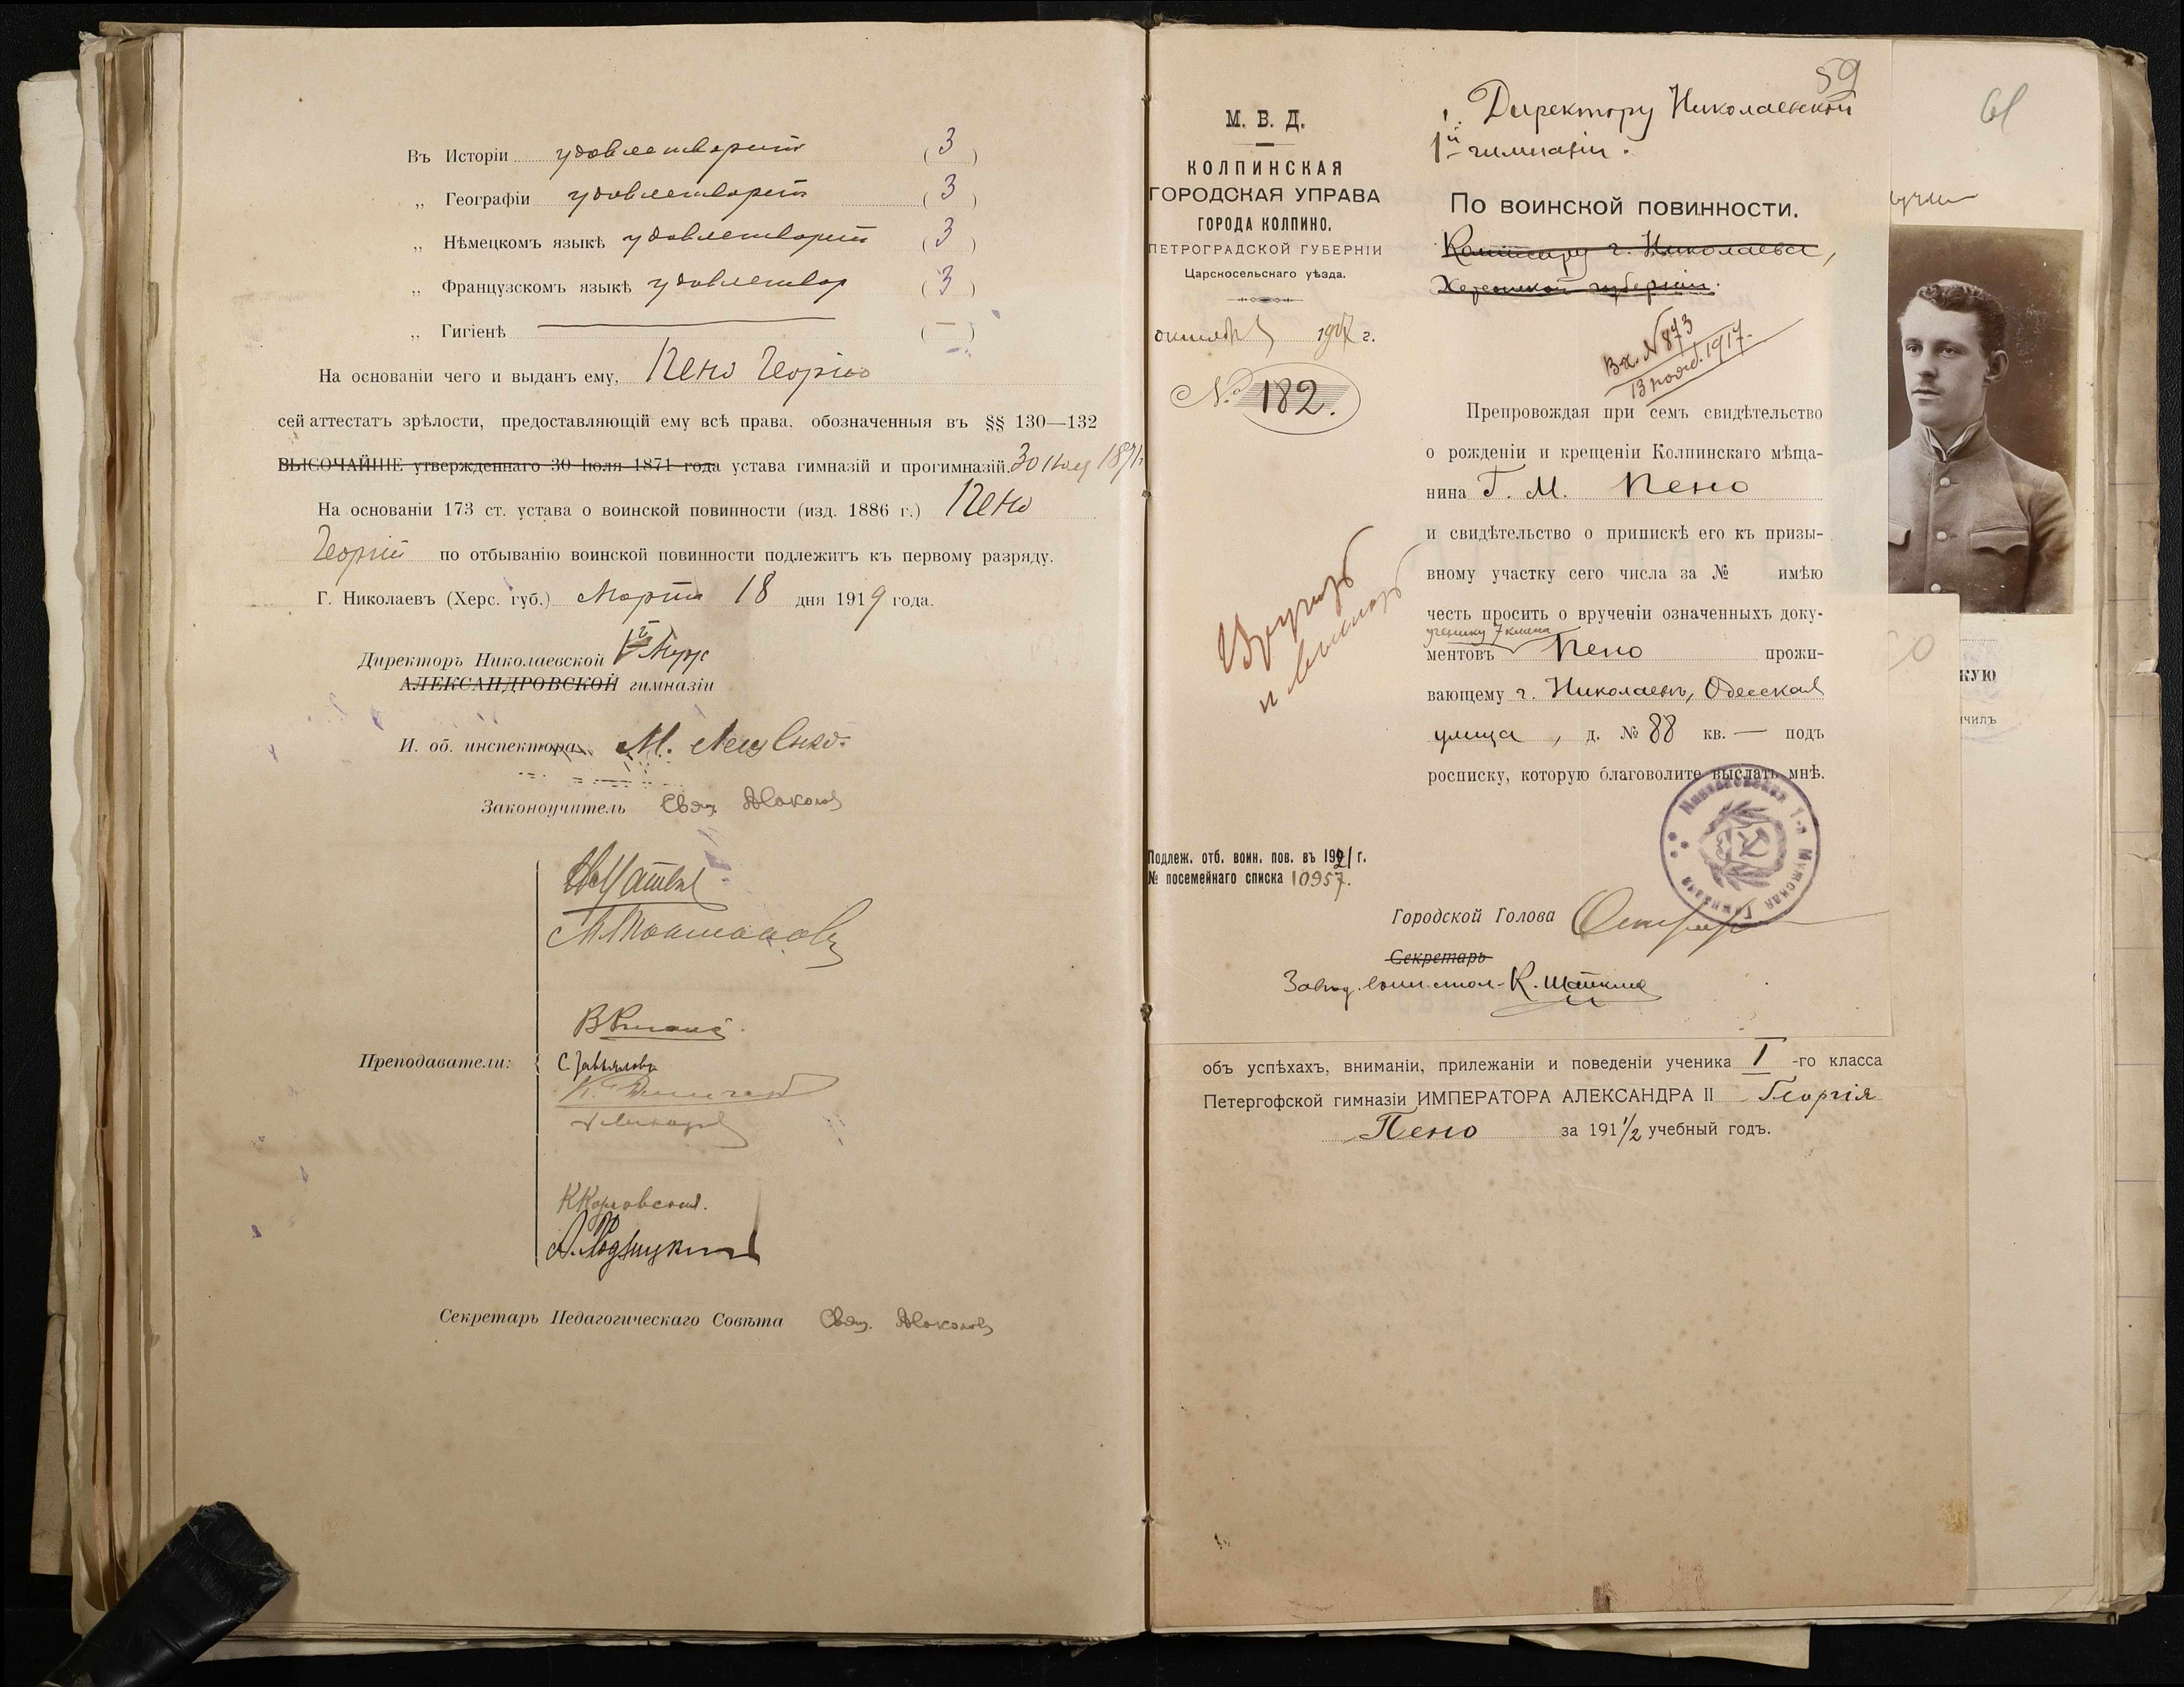 Въ Исторіи удовлетворит (3)
„ Географіи удовлетворит (3)
„ Нѣмецкомъ языкѣ удовлетворит (3)
„ Французскомъ языкѣ удовлетвор (3)
„ Гигіенѣ — (—)
На основаніи чего и выданъ ему, Пено Георгію
сей аттестатъ зрѣлости, предоставляющій ему всѣ права, обозначенныя въ §§ 130—132
ВЫСОЧАЙШЕ утвержденнаго 30 Іюля 1871 года устава гимназій и прогимназій. 30 Іюля 1871 г
На основаніи 173 ст. устава о воинской повинности (изд. 1886 г.) Пено
Георгій по отбыванію воинской повинности подлежитъ къ первому разряду.
Г. Николаевъ (Херс. губ.) Марта 18 дня 1919 года.
Директоръ Николаевской 1й Муж
АЛЕКСАНДРОВСКОЙ гимназіи
И. об. инспектора М.
Законоучитель Свящ.
Преподаватели:
С. Завьялова
А. Родзицкий
Секретарь Педагогическаго Совѣта Свящ.
59
Директору Николаевской
1й гимназіи.
М. В. Д.
КОЛПИНСКАЯ
ГОРОДСКАЯ УПРАВА
ГОРОДА КОЛПИНО,
ПЕТРОГРАДСКОЙ ГУБЕРНІИ
Царскосельскаго уѣзда.
октября 1917 г.
№ 182.
По воинской повинности.
Комиссару г. Николаева,
Херсонской губерніи.
Вх. № 873
13 нояб. 1917.
Препровождая при семъ свидѣтельство
о рожденіи и крещеніи Колпинскаго мѣща-
нина Г. М. Пено
и свидѣтельство о припискѣ его къ призы-
вному участку сего числа за № имѣю
честь просить о врученіи означенныхъ доку-
ученику 7 класса
ментовъ Пено прожи-
вающему г. Николаевъ, Одесская
улица, д. № 88 кв. — подъ
росписку, которую благоволите выслать мнѣ.
Николаевская 1-я Мужская Гимназія
Подлеж. отб. воин. пов. въ 1921 г.
№ посемейнаго списка 10957.
Городской Голова
Секретарь
Завѣд. воин. стол. К.
объ успѣхахъ, вниманіи, прилежаніи и поведеніи ученика I -го класса
Петергофской гимназіи ИМПЕРАТОРА АЛЕКСАНДРА II Георгія
Пено за 1911/2 учебный годъ.
61
60
кую
ичилъ